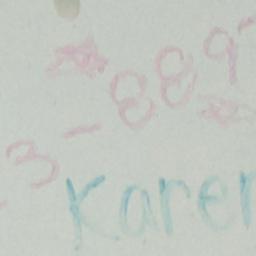 3-889
Karen